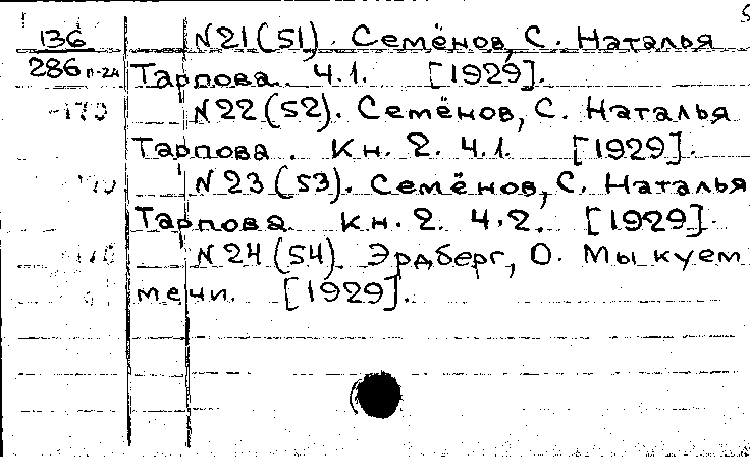 5
136 N21(51). Семёнов, С. Наталья
286 п-2д Тарпова. Ч.1. [1929].
N22(52). Семёнов, С. Наталья
Тарпова. Кн. 2. Ч.1. [1929].
N23(53). Семёнов, С. Наталья
Тарпова. Кн. 2. Ч.2. [1929].
N24(54). Эрдберг, О. Мы куем
мечи. [1929].